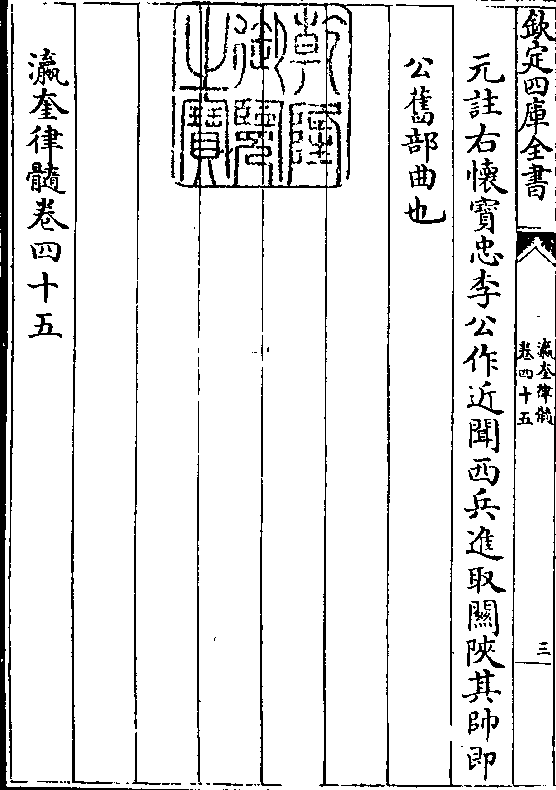 欽定四庫全書
瀛奎律髓
卷四十五
三
元註右懷寶忠李公作近聞西兵進取關陜其帥即
公舊部曲也
乾隆
御覽
之寶
瀛奎律髓卷四十五